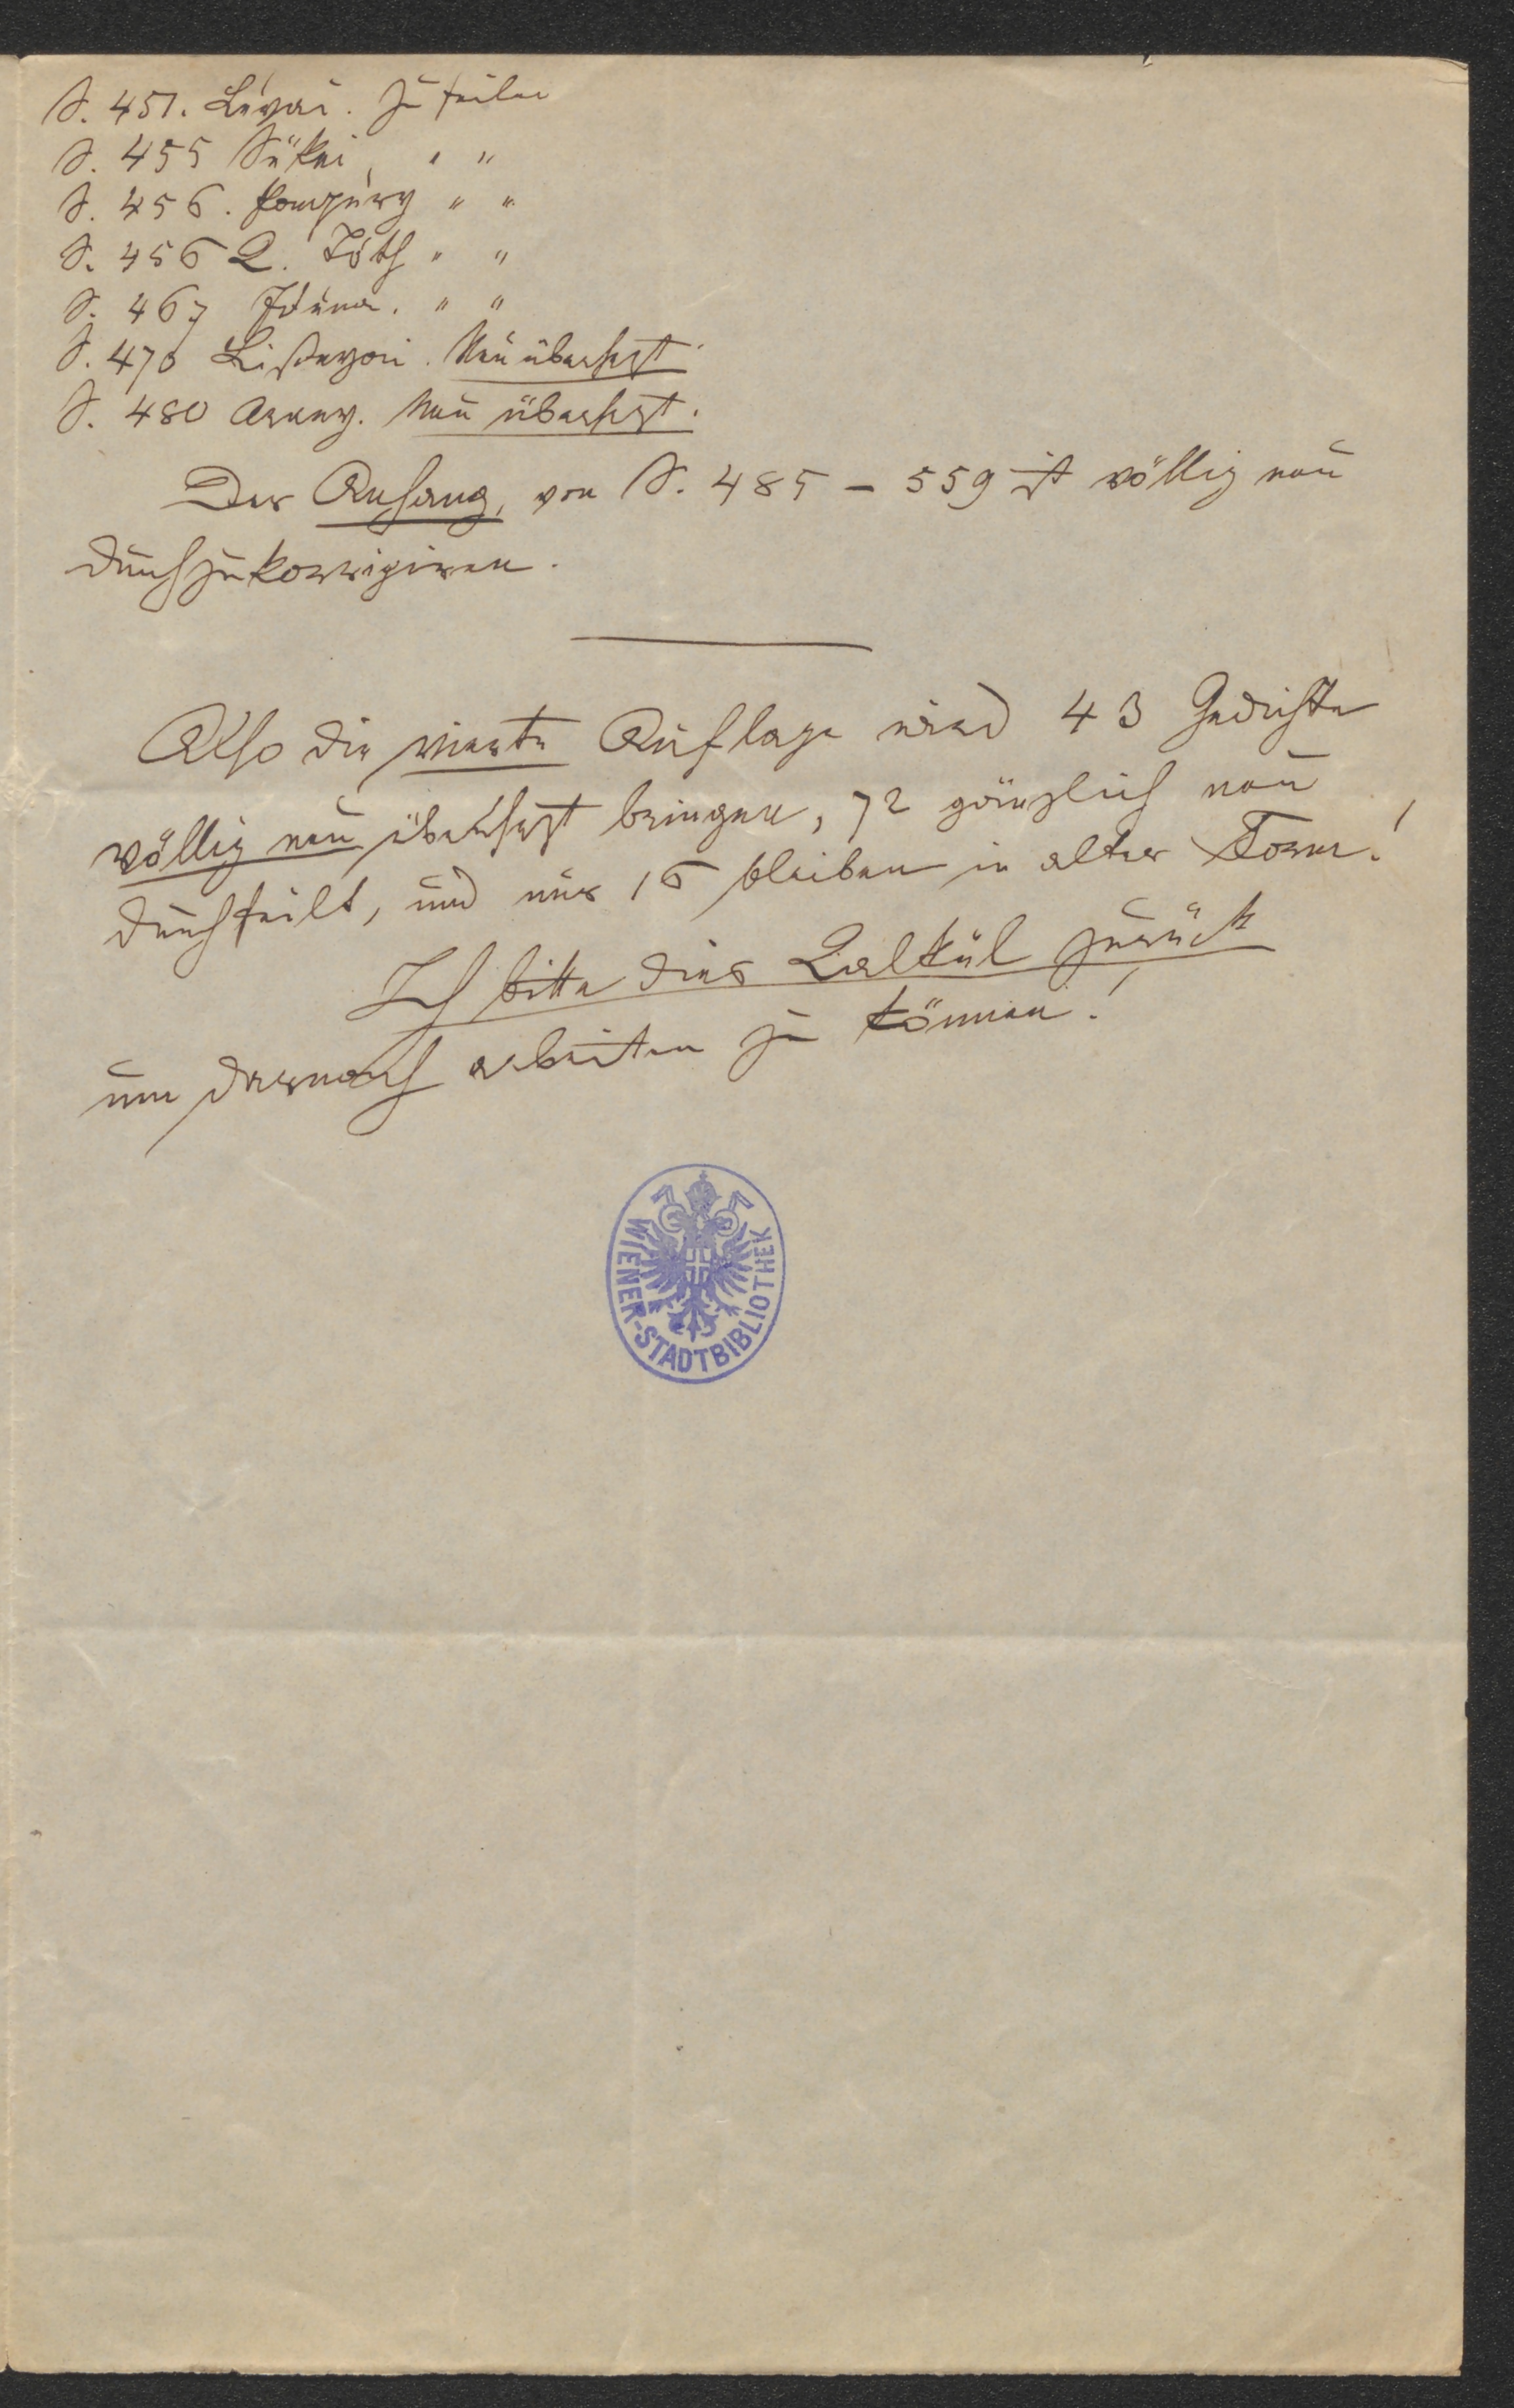 S. 451. Lévai. Zu feilen
S. 455 Sükei " "
S. 456. Pompéry " "
S. 456 Q. Tóth " "
S. 467 Iduna. " "
S. 470 Lisznyai. Neu übersetzt.
S. 480 Arany. Neu übersetzt.
Der Anhang, von S. 485 – 559 ist völlig neu
durchzukorrigiren.
Also die vierte Auflage wird 43 Gedichte
völlig neu übersetzt bringen, 72 gänzlich neu
durchfeilt, und nur 16 bleiben in alter Form!
Ich bitte dies Calkül zurück
um darnach arbeiten zu können!
WIENER-STADTBIBLIOTHEK